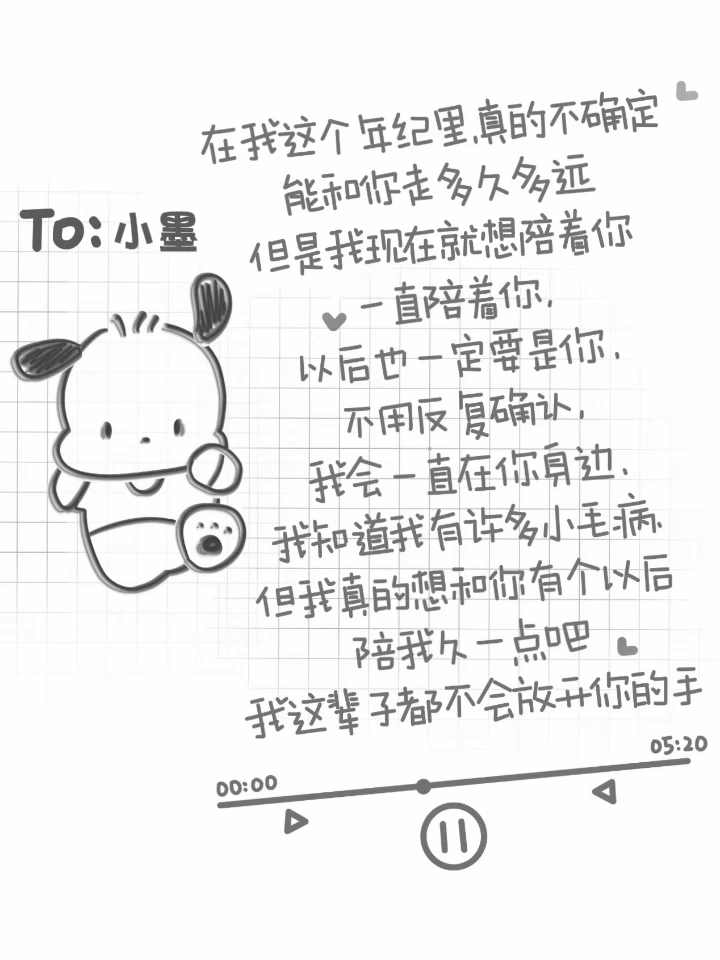 在我这个年纪里,真的不确定
能和你走多久多远
To:小墨
但是我现在就想陪着你
一直陪着你,
以后也一定要是你,
不用反复确认,
我会一直在你身边,
我知道我有许多小毛病,
但我真的想和你有个以后
陪我久一点吧
我这辈子都不会放开你的手
05:20
00:00